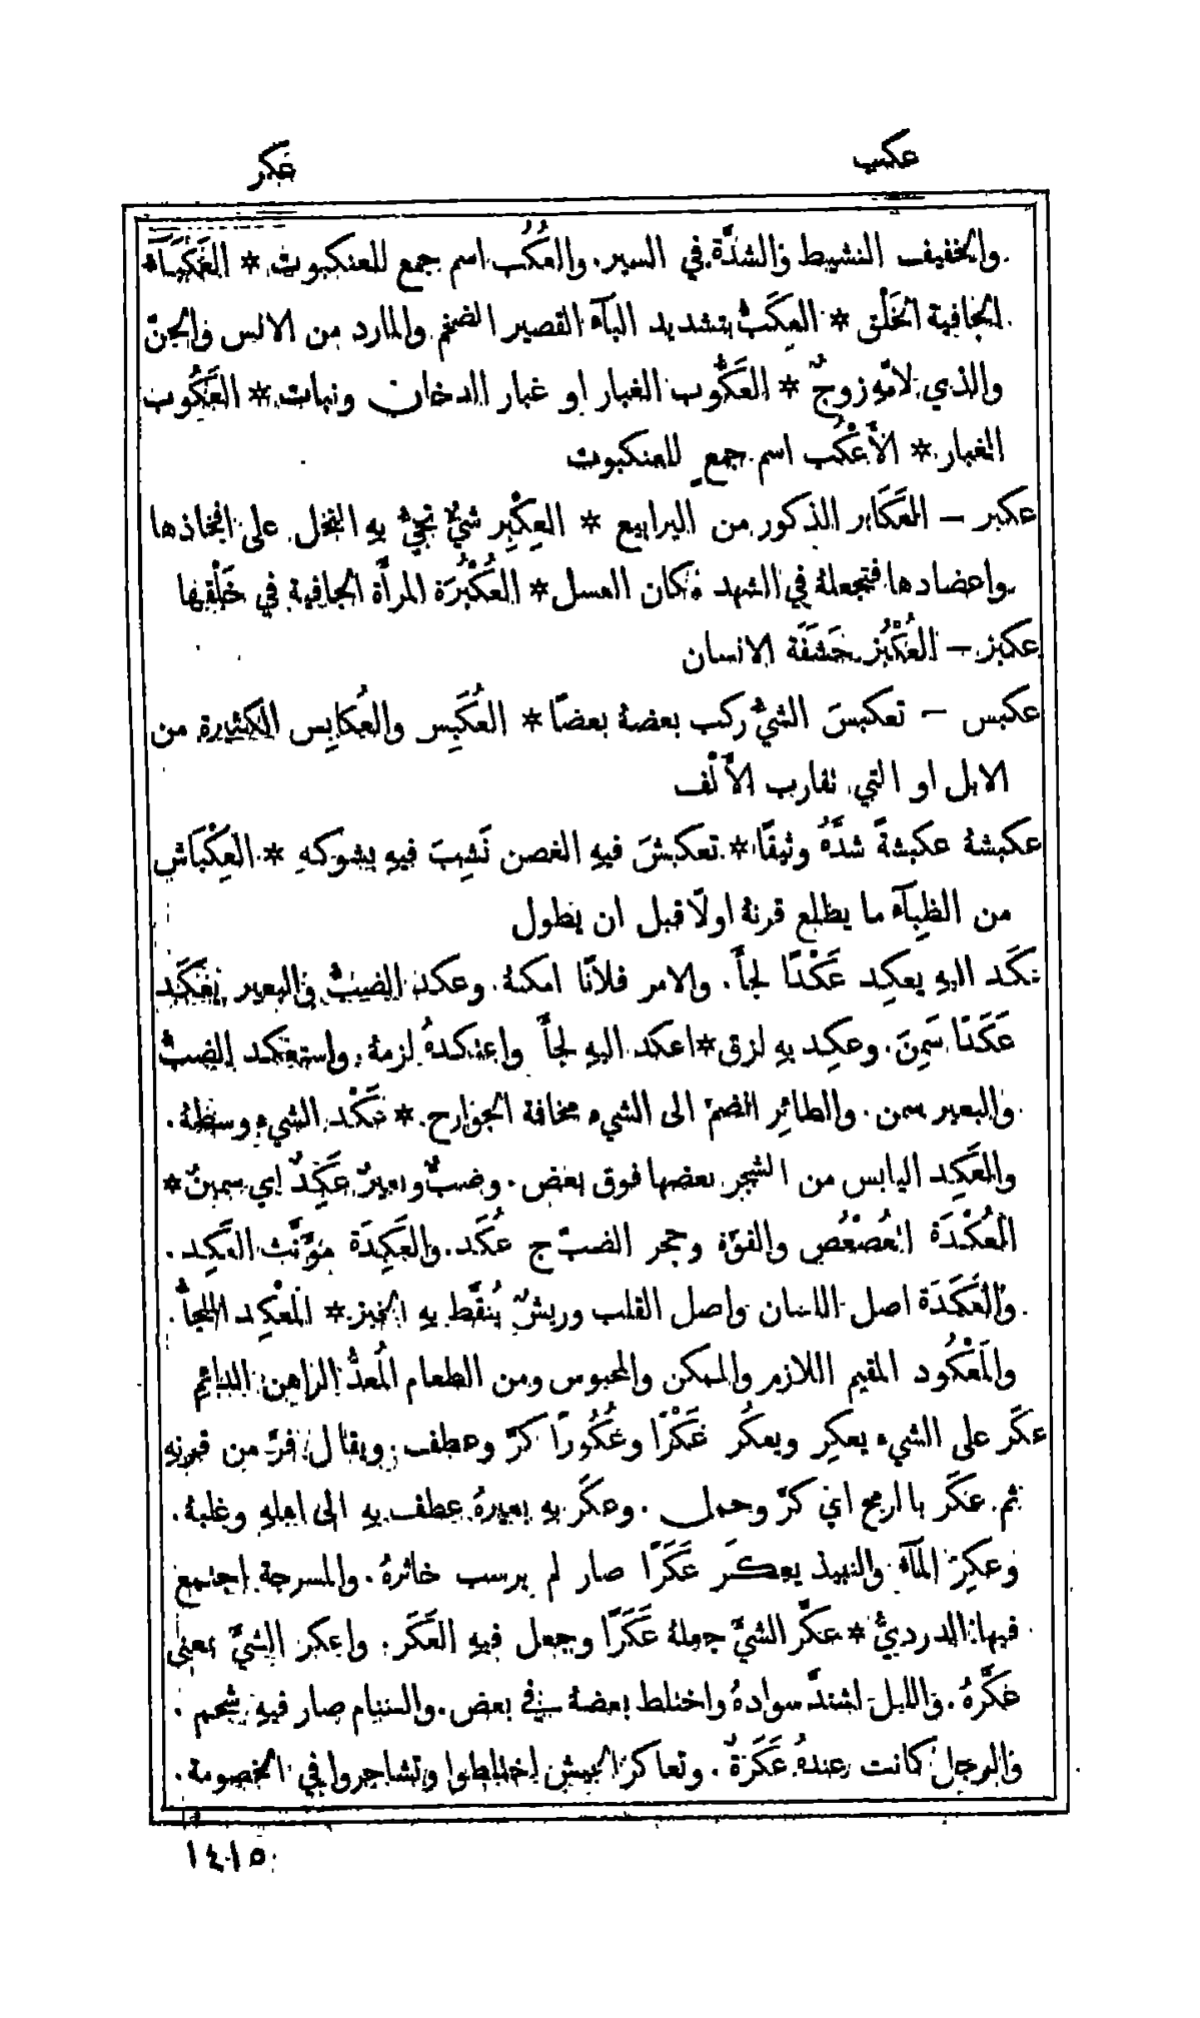 عكب
عكر
والخفيف النشيط والشدّة في السير. والعُكُب اسم جمع للعنكبوت * العَكْبَآء
الجافية الخَلْق * العِكَبُّ بتشديد البآء القصير الضخم والمارد من الانس والجنّ
والذي لامّهِ زوجٌ * العَكُّوب الغبار او غبار الدخان ونبات * العَكُوب
الغبار * الأَعْكُب اسم جمعٍ للعنكبوت
عكبر – العَكَابر الذكور من اليرابيع * العِكْبِر شيءٌ تجيُّ بهِ النحل على افخاذها
واعضادها فتجعلهُ في الشهد مكان العسل * العُكْبُرَة المرأَة الجافية في خَلْقِها
عكبز – العُكْبُز حَشَفَة الانسان
عكبس – تعكبسَ الشيُّ ركب بعضهُ بعضًا * العُكَبِس والعُكَابِس الكثيرة من
الابل او التي تقارب الأَلْف
عكبشهُ عكبشةً شدَّهُ وثيقًا * تعكبشَ فيهِ الغصن نَشِبَ فيهِ بشوكهِ * العِكْبَاش
من الظِبآء ما يطلع قرنهُ اولًا قبل ان يطول
عكَد اليهِ يعكِد عَكْدًا لجأَ. والامر فلانًا امكنهُ. وعكد الضبُّ والبعير يَعْكَد
عَكَدًا سَمِنَ. وعكِد بهِ لزق * اعكد اليهِ لجأَ واعتكدهُ لزمهُ. واستعكد الضبُّ
والبعير سمن. والطائِر انضمّ الى الشيء مخافة الجوارح * عَكْد الشيء وسطهُ.
والعَكِد اليابس من الشجر بعضها فوق بعض. وضبٌّ وبعيرٌ عَكِدٌ اي سمينٌ *
العُكْدَة العُصْعُص والقوّة وجحر الضبّ ج عُكَد. والعَكِدَة مؤَنَّث العَكِد.
والعَكَدَة اصل اللسان واصل القلب وريشٌ يُنقَّط بهِ الخبز * المَعْكِد الملجأُ.
والمَعْكُود المقيم اللازم والممكن والمحبوس ومن الطعام المُعدُّ الراهن الدائم
عكَر على الشيء يعكِر ويعكُر عَكْرًا وعُكُورًا كرّ وعطف. ويقال فرّ من قرنهِ
ثم عكَر بالرمح اي كرّ وحمل. وعكَر بهِ بعيرهُ عطف بهِ الى اهلهِ وغلبهُ.
وعكِرَ المآء والنبيذ يعكَر عَكَرًا صار لم يرسب خاثرهُ. والمسرجة اجتمع
فيها الدرديُّ * عكَّر الشيَّ جعلهُ عَكَرًا وجعل فيهِ العَكَر. واعكر الشيَّ بمعنى
عَكَّرهُ. والليل اشتدّ سوادهُ واختلط بعضهُ في بعض. والسنام صار فيهِ شحم.
والرجل كانت عندهُ عَكَرَةٌ. وتعاكر الجيش اختلطوا وتشاجروا في الخصومة.
١٤١٥